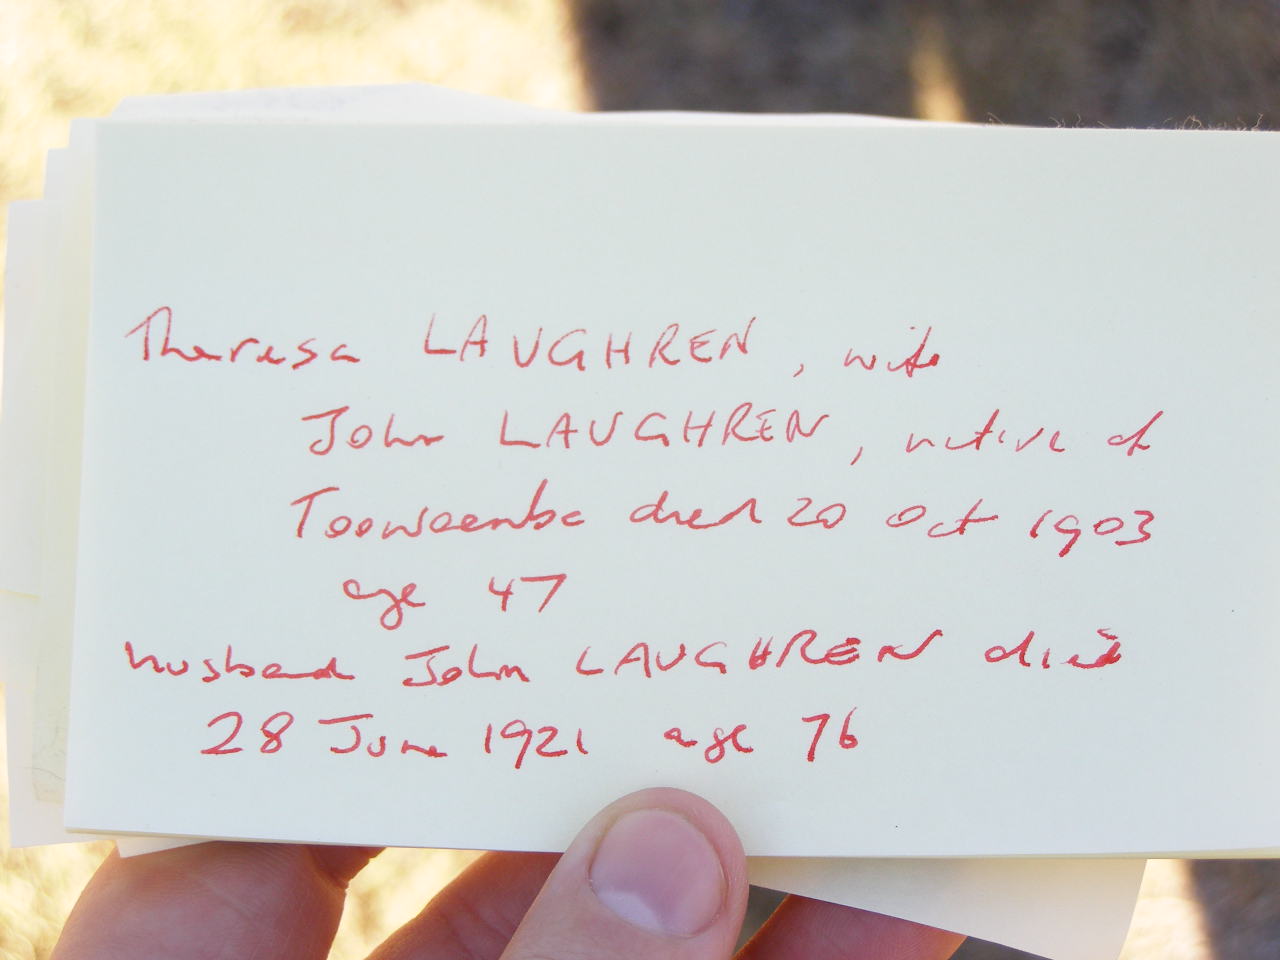 Theresa LAUGHREN, wife
John LAUGHREN, native of
Toowoomba died 20 Oct 1903
age 47
husband John LAUGHREN died
28 June 1921 age 76